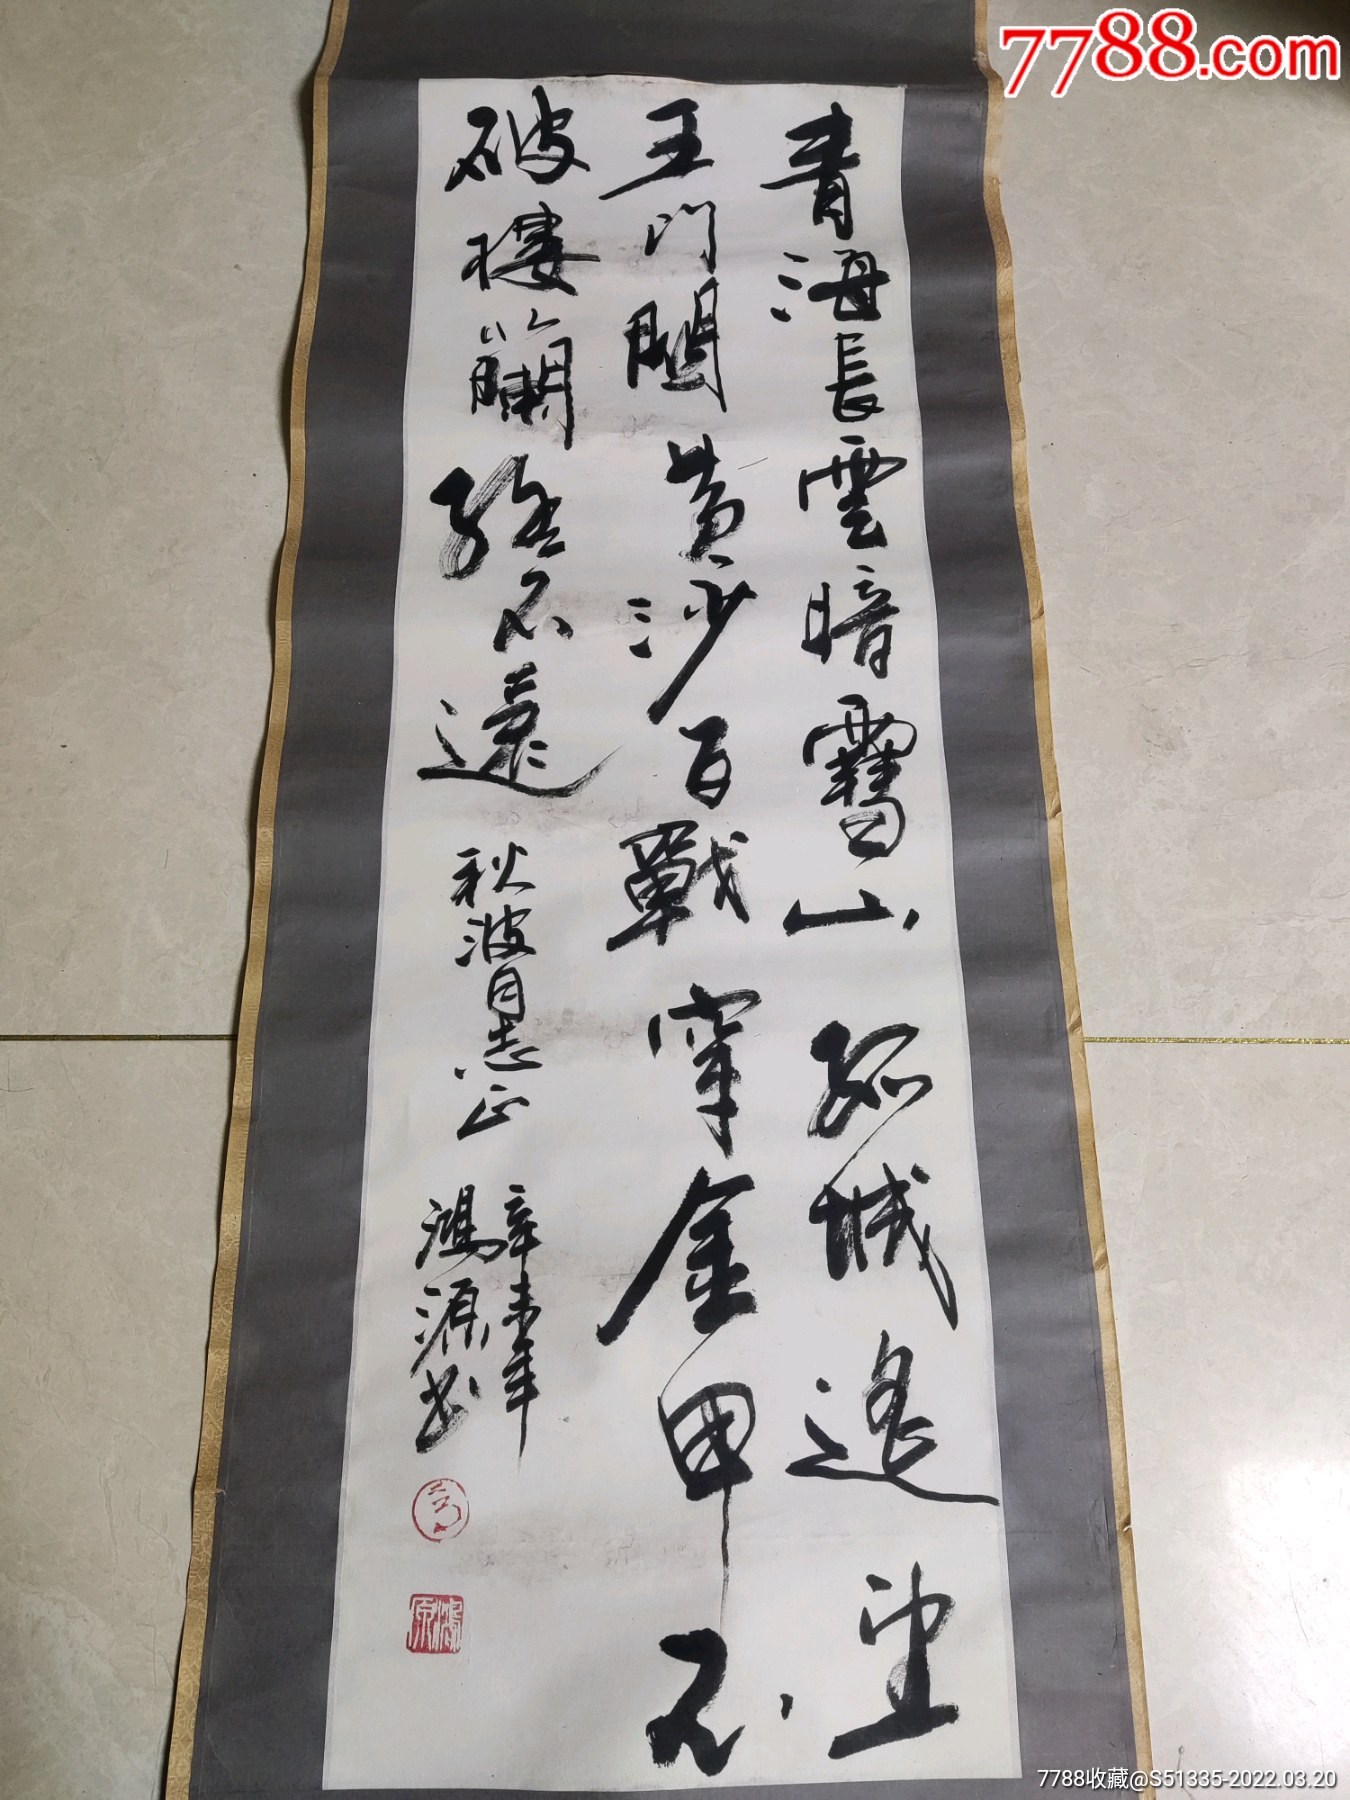 7788.com
青海長雲暗雪山孤城遙望
玉門關黃沙百戰穿金甲不
破樓蘭終不還 秋波同志正
辛未年
鴻源书
7788收藏@S51335-2022.03.20